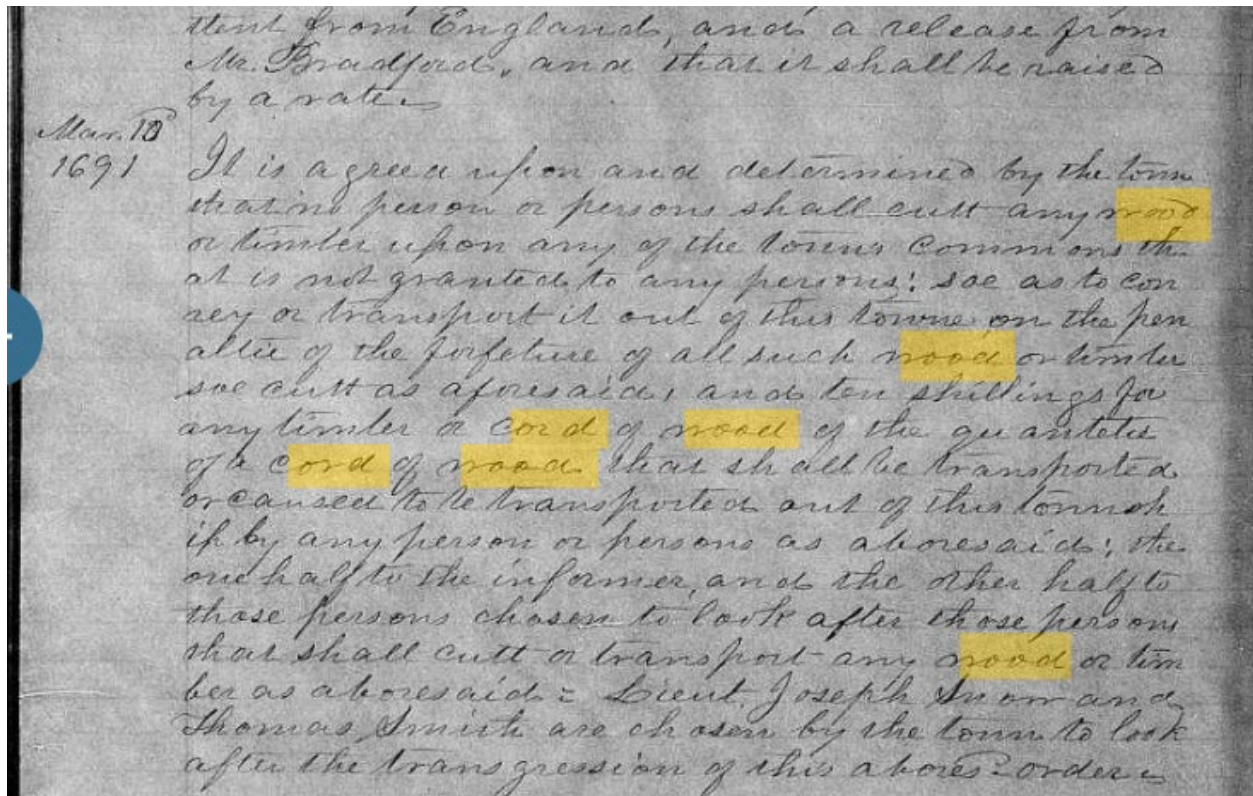 ttent from England, and a release from
Mr. Bradford, and that it shall be raised
by a rate.
Mar. 10
1691
It is agreed upon and determined by the town
that no person or persons shall cutt any wood
or timber upon any of the towns commons th
at is not granted to any persons: soe as to con
vey or transport it out of this towne on the pen
altie of the forfeture of all such wood or timber
soe cutt as aforesaid, and ten shillings for
any timber or cord of wood of the quantetie
of a cord of wood that shall be transported
or caused to be transported out of this townsh
ip by any person or persons as aboresaid; the
one half to the informer, and the other half to
those persons chosen to look after those persons
that shall cutt or transport any wood or tim
ber as aboresaid = Lieut. Joseph Snow and
Thomas Smith are chosen by the town to look
after the transgression of this abores:d order =